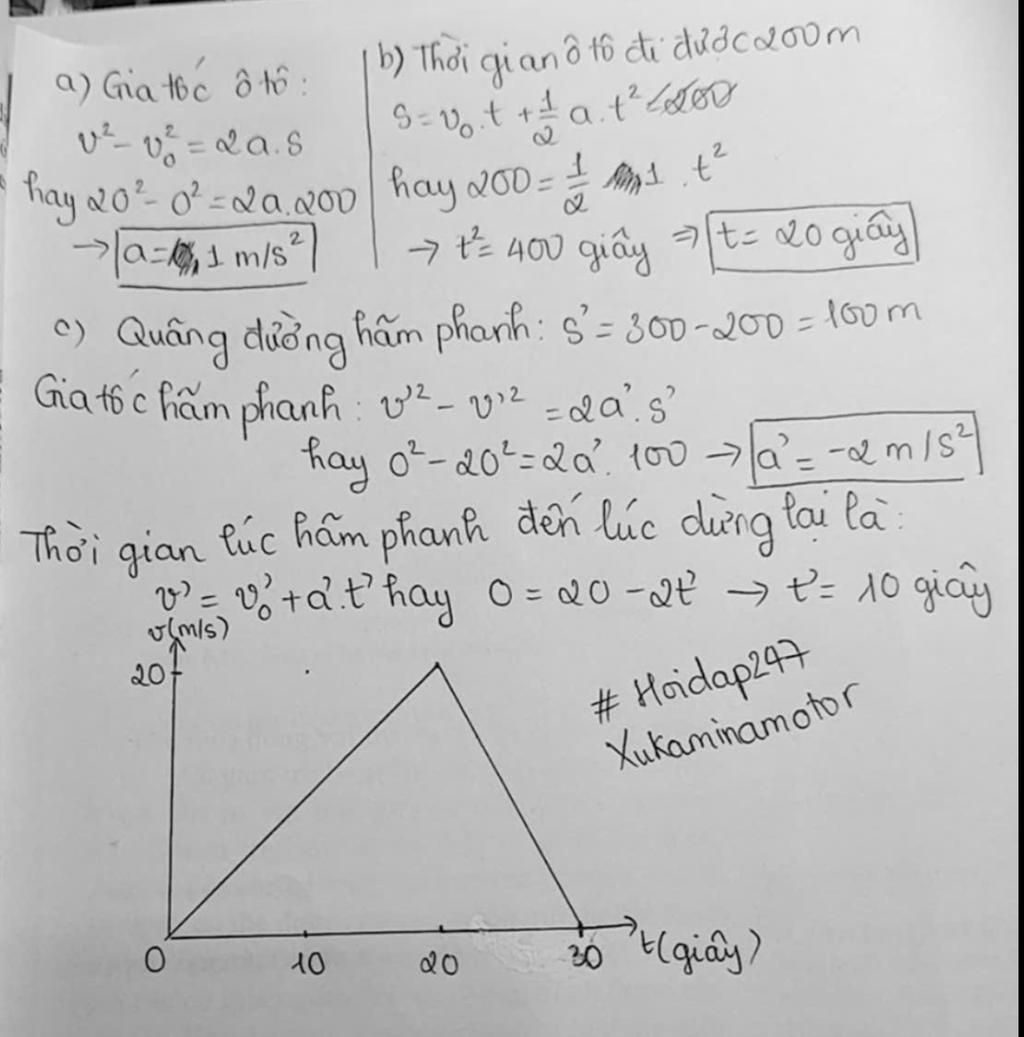 a) Gia tốc ô tô:
v² - v₀² = 2a.s
hay 20² - 0² = 2a.200
→ a = 1 m/s²
b) Thời gian ô tô đi được 200m
s = v₀.t + 1/2 a.t²
hay 200 = 1/2 1.t²
→ t² = 400 giây ⇒ t = 20 giây
c) Quãng đường hãm phanh: s' = 300 - 200 = 100m
Gia tốc hãm phanh: v'² - v'² = 2a'.s'
hay 0² - 20² = 2a'. 100 → a' = -2 m/s²
Thời gian lúc hãm phanh đến lúc dừng lại là:
v' = v₀' + a'.t' hay 0 = 20 - 2t' → t' = 10 giây
v(m/s)
20
# Hoidap247
Xukaminamotor
0 10 20 30 t(giây)